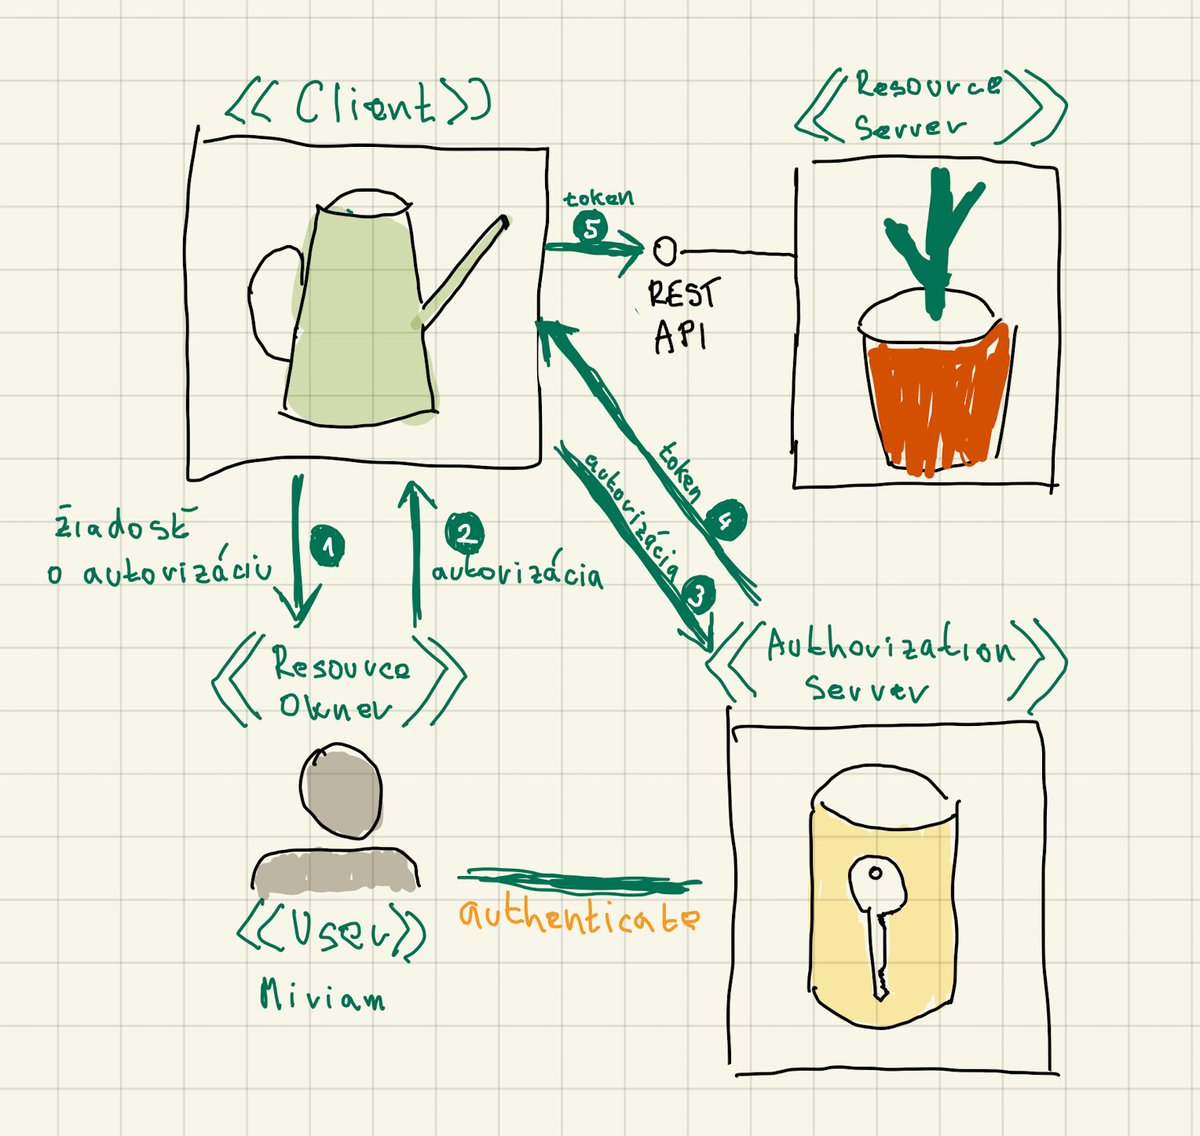 <<Client>>
<<Resource
Server>>
token
5
REST
API
token
4
autorizácia
3
žiadosť
o autorizáciu
1
2
autorizácia
<<Resource
Owner>>
<<Authorization
Server>>
authenticate
<<User>>
Miriam